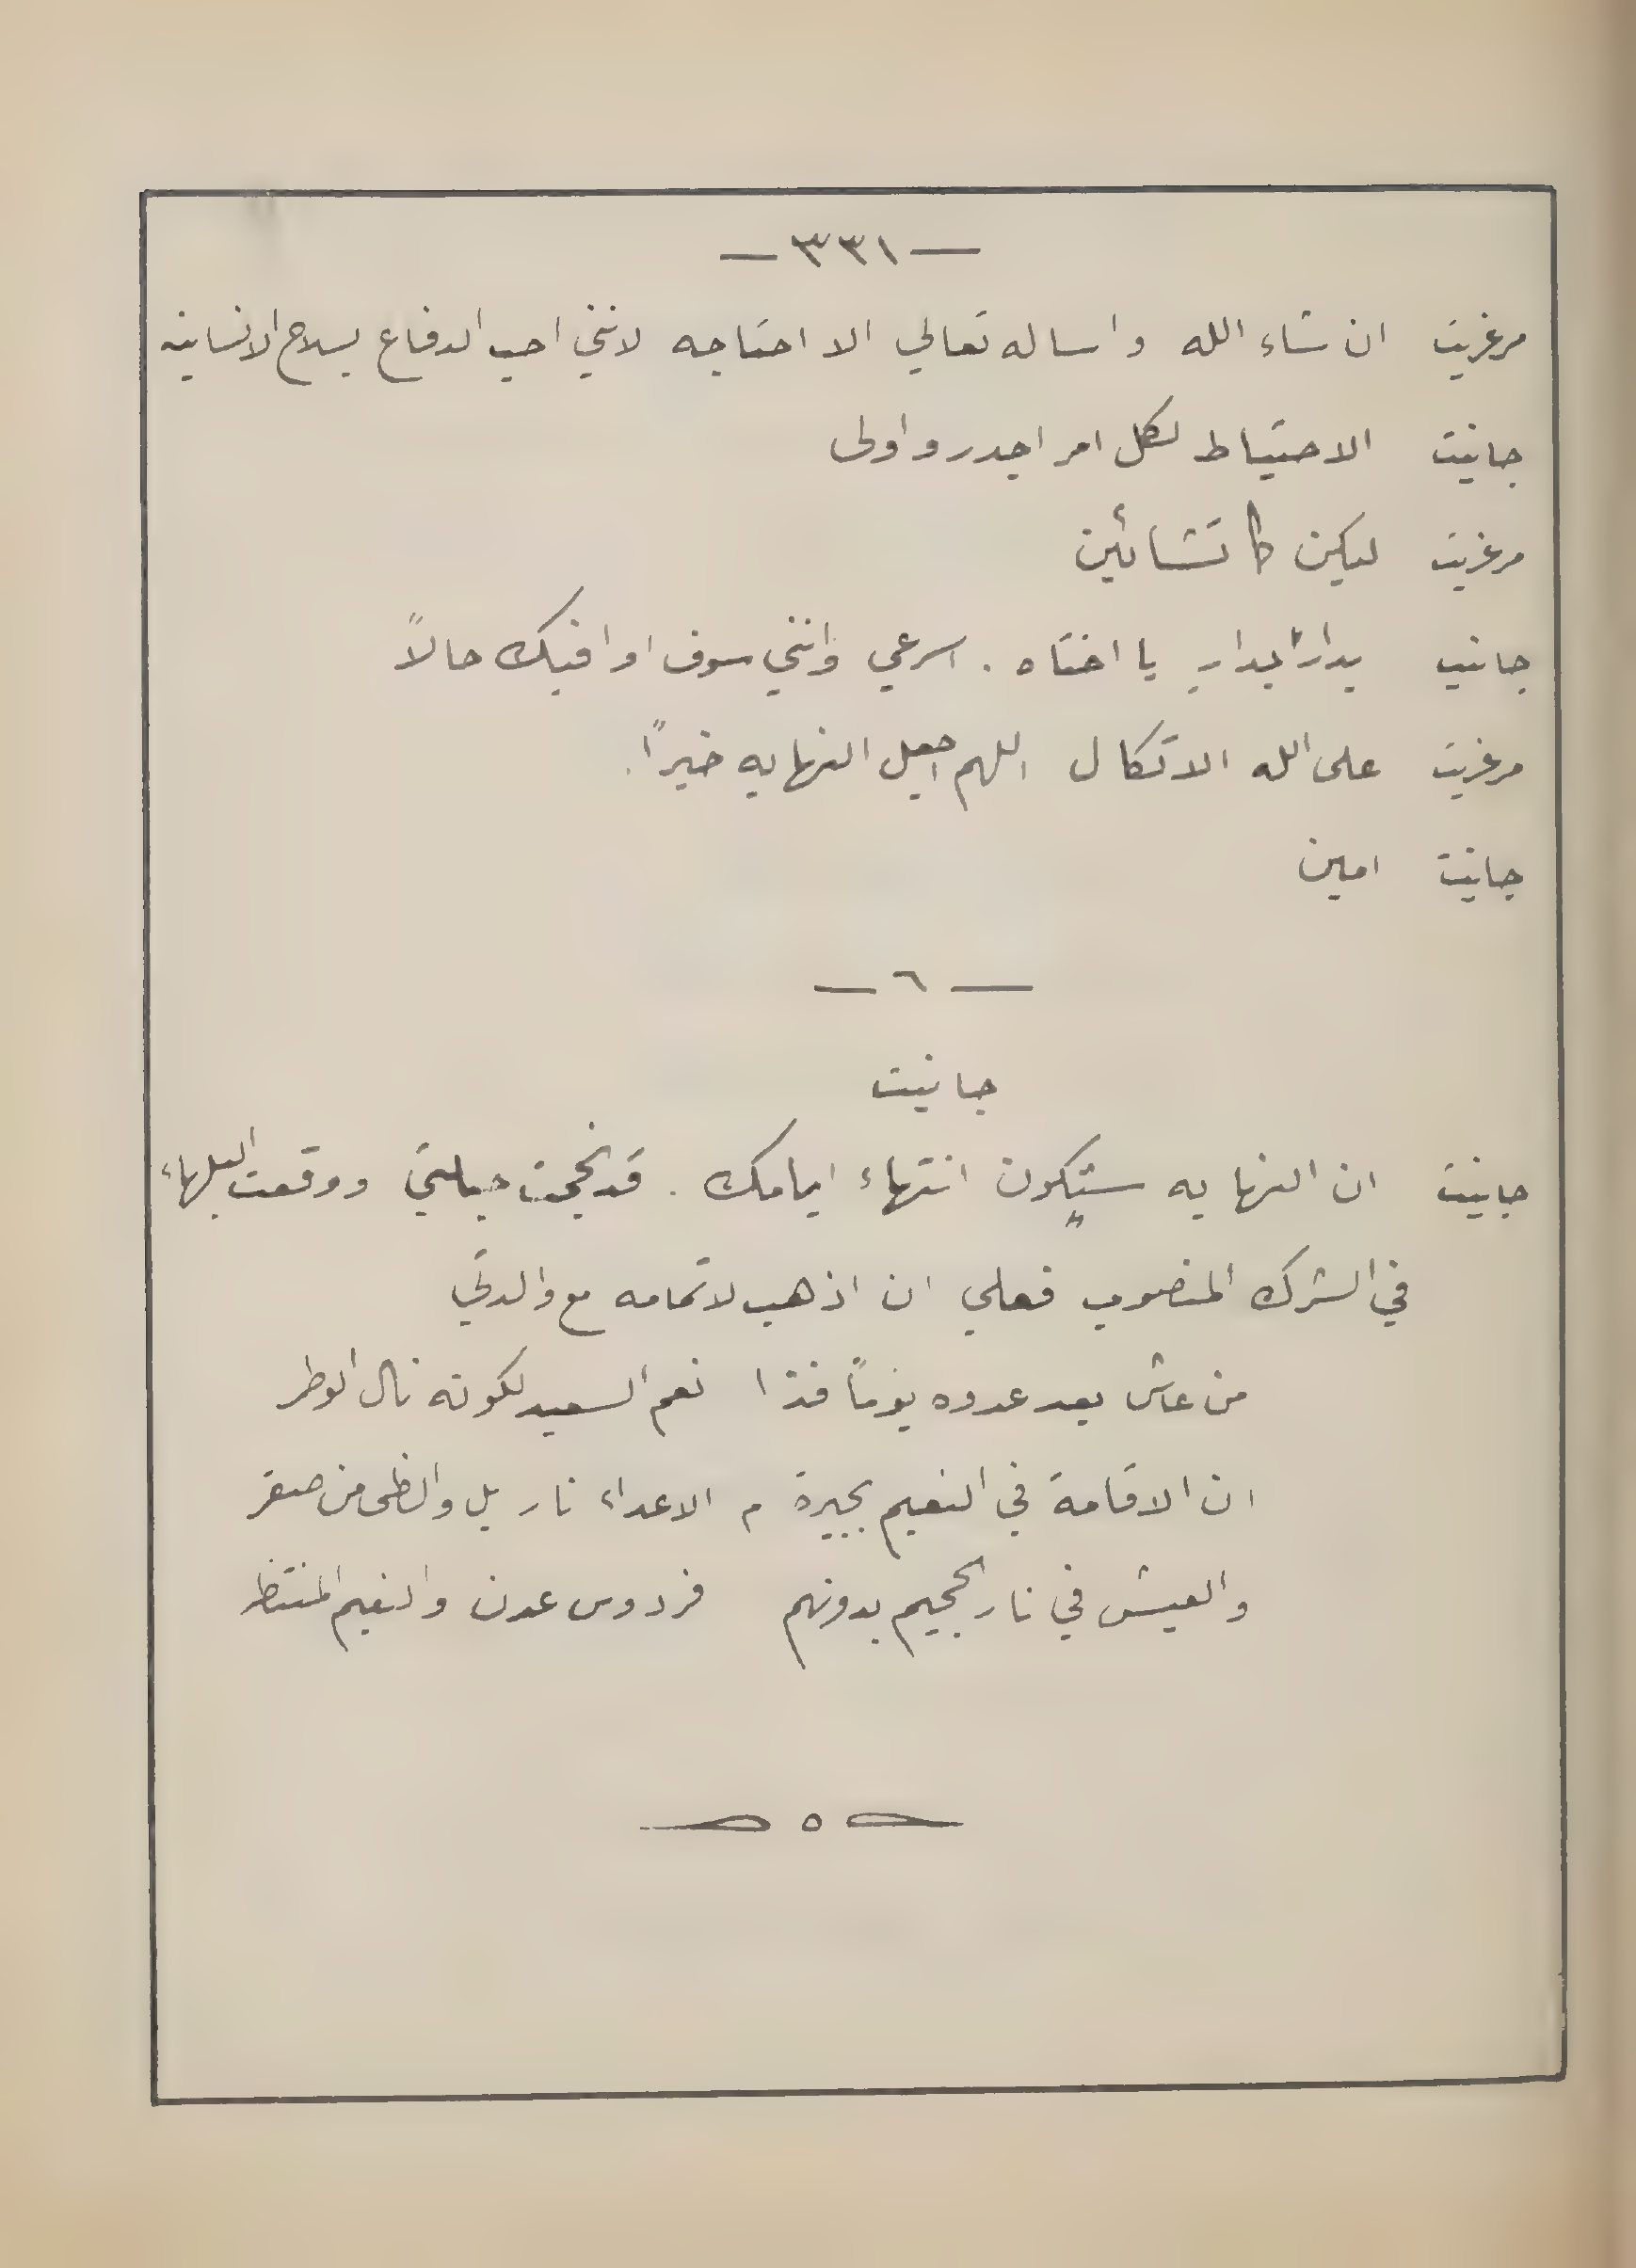 — ٣٣١ —
مرغريت ان شاء الله واساله تعالي الا احتاجه لانني احب الدفاع بسلاح الانسانيه
جانيت الاحتياط لكل امر اجدر واولى
مرغريت ليكن كما تشائين
جانيت بدارِ بدارِ يا اختاه . اسرعي وانني سوف اوافيك حالاً
مرغريت على الله الاتكال اللهم اجعل النهايه خيراً .
جانيت امين
— ٦ —
جانيت
جانيت ان النهايه ستكون انتهاء ايامك . قد نجحت حيلتي ووقعت البلهاء
في الشرك المنصوب فعلي ان اذهب لاتمامه مع والدتي
من عاش بعد عدوه يوماً فذا نعم السعيد لكونه نال الوطر
ان الاقامة في النعيم بجيرة م الاعداء نار بل والظى من صقر
والعيش في نار الجحيم بدونهم فردوس عدن والنعيم المنتظر